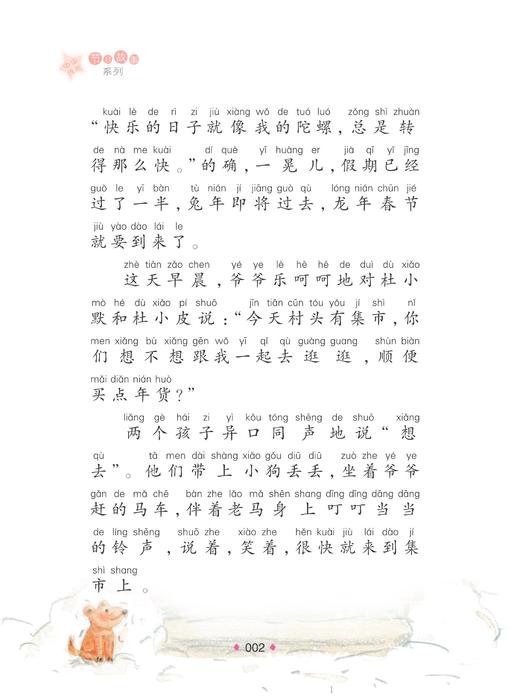 节日故事
系列
kuài lè de rì zi jiù xiàng wǒ de tuó luó zǒng shì zhuàn
“快乐的日子就像我的陀螺，总是转
de nà me kuài dí què yī huàng er jià qī yǐ jīng
得那么快。”的确，一晃儿，假期已经
guò le yī bàn tù nián jí jiāng guò qù lóng nián chūn jié
过了一半，兔年即将过去，龙年春节
jiù yào dào lái le
就要到来了。
zhè tiān zǎo chen yé ye lè hē hē de duì dù xiǎo
这天早晨，爷爷乐呵呵地对杜小
mò hé dù xiǎo pí shuō jīn tiān cūn tóu yǒu jí shì nǐ
默和杜小皮说：“今天村头有集市，你
men xiǎng bù xiǎng gēn wǒ yī qǐ qù guàng guang shùn biàn
们想不想跟我一起去逛逛，顺便
mǎi diǎn nián huò
买点年货？”
liǎng gè hái zi yì kǒu tóng shēng de shuō xiǎng
两个孩子异口同声地说“想
qù tā men dài shàng xiǎo gǒu diū diū zuò zhe yé ye
去”。他们带上小狗丢丢，坐着爷爷
gǎn de mǎ chē bàn zhe lǎo mǎ shēn shang dīng dīng dāng dāng
赶的马车，伴着老马身上叮叮当当
de líng shēng shuō zhe xiào zhe hěn kuài jiù lái dào jí
的铃声，说着，笑着，很快就来到集
shì shang
市上。
002